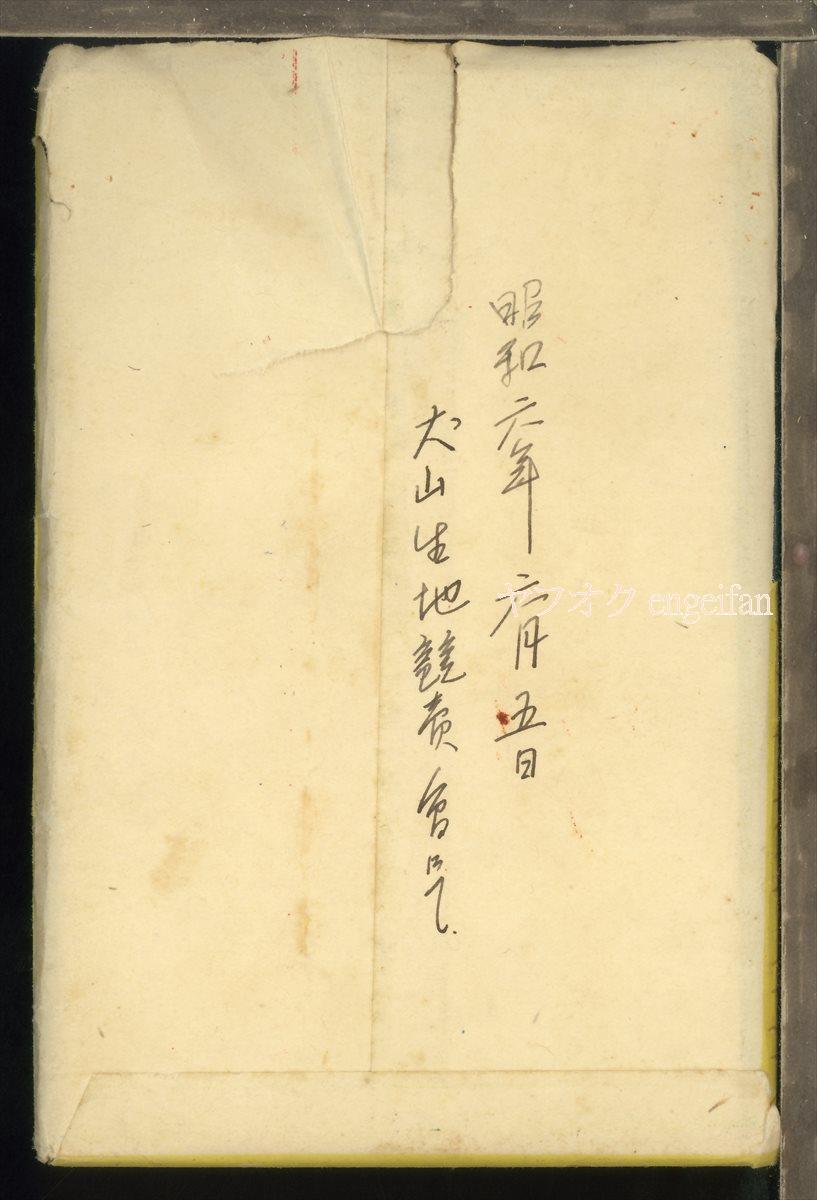 昭和六年六月五日
犬山生地競売会ニて
ヤフオク engeifan